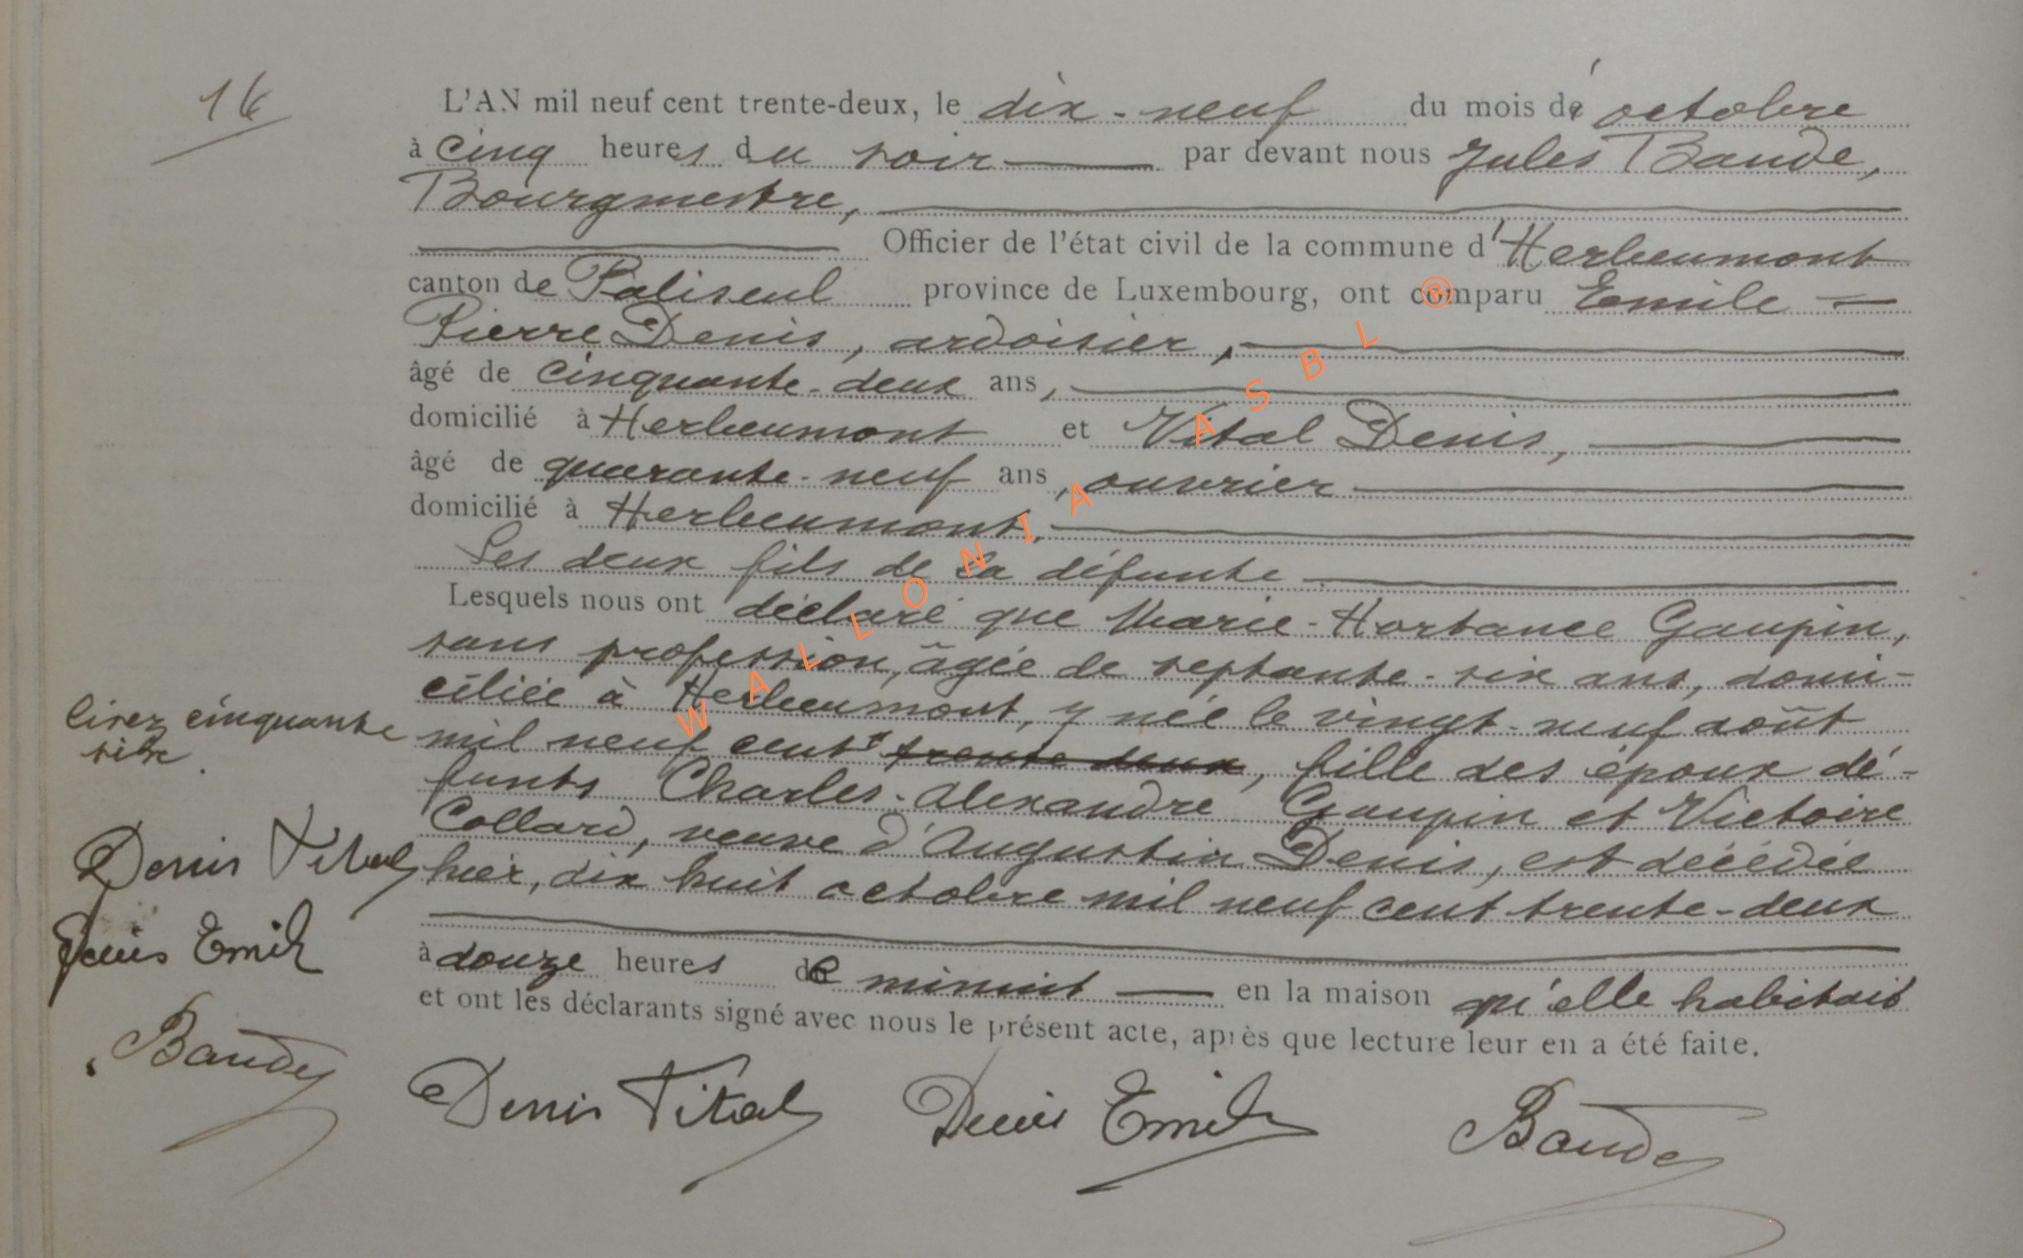 16
L'AN mil neuf cent trente-deux, le dix-neuf du mois de octobre
à cinq heures du soir par devant nous Jules Baude,
Bourgmestre,
Officier de l'état civil de la commune d'Herbeumont
canton de Paliseul province de Luxembourg, ont comparu Emile
Pierre Denis, ardoisier,
âgé de cinquante-deux ans,
domicilié à Herbeumont et Vital Denis,
âgé de quarante-neuf ans, ouvrier
domicilié à Herbeumont,
Les deux fils de la défunte
Lesquels nous ont déclaré que Marie-Hortance Gaupin,
sans profession, âgée de septante-six ans, domi-
ciliée à Herbeumont, y née le vingt-neuf août
mil neuf cent trente deux, fille des époux dé-
funts Charles-Alexandre Gaupin et Victoire
Collard, veuve d'Augustin Denis, est décédée
hier, dix huit octobre mil neuf cent trente-deux
à douze heures de minuit en la maison qu'elle habitait
et ont les déclarants signé avec nous le présent acte, après que lecture leur en a été faite.
lirez cinquante
Denis Vital
Denis Emile
Baude
Denis Vital Denis Emile Baude
WALLONIA ASBL ®